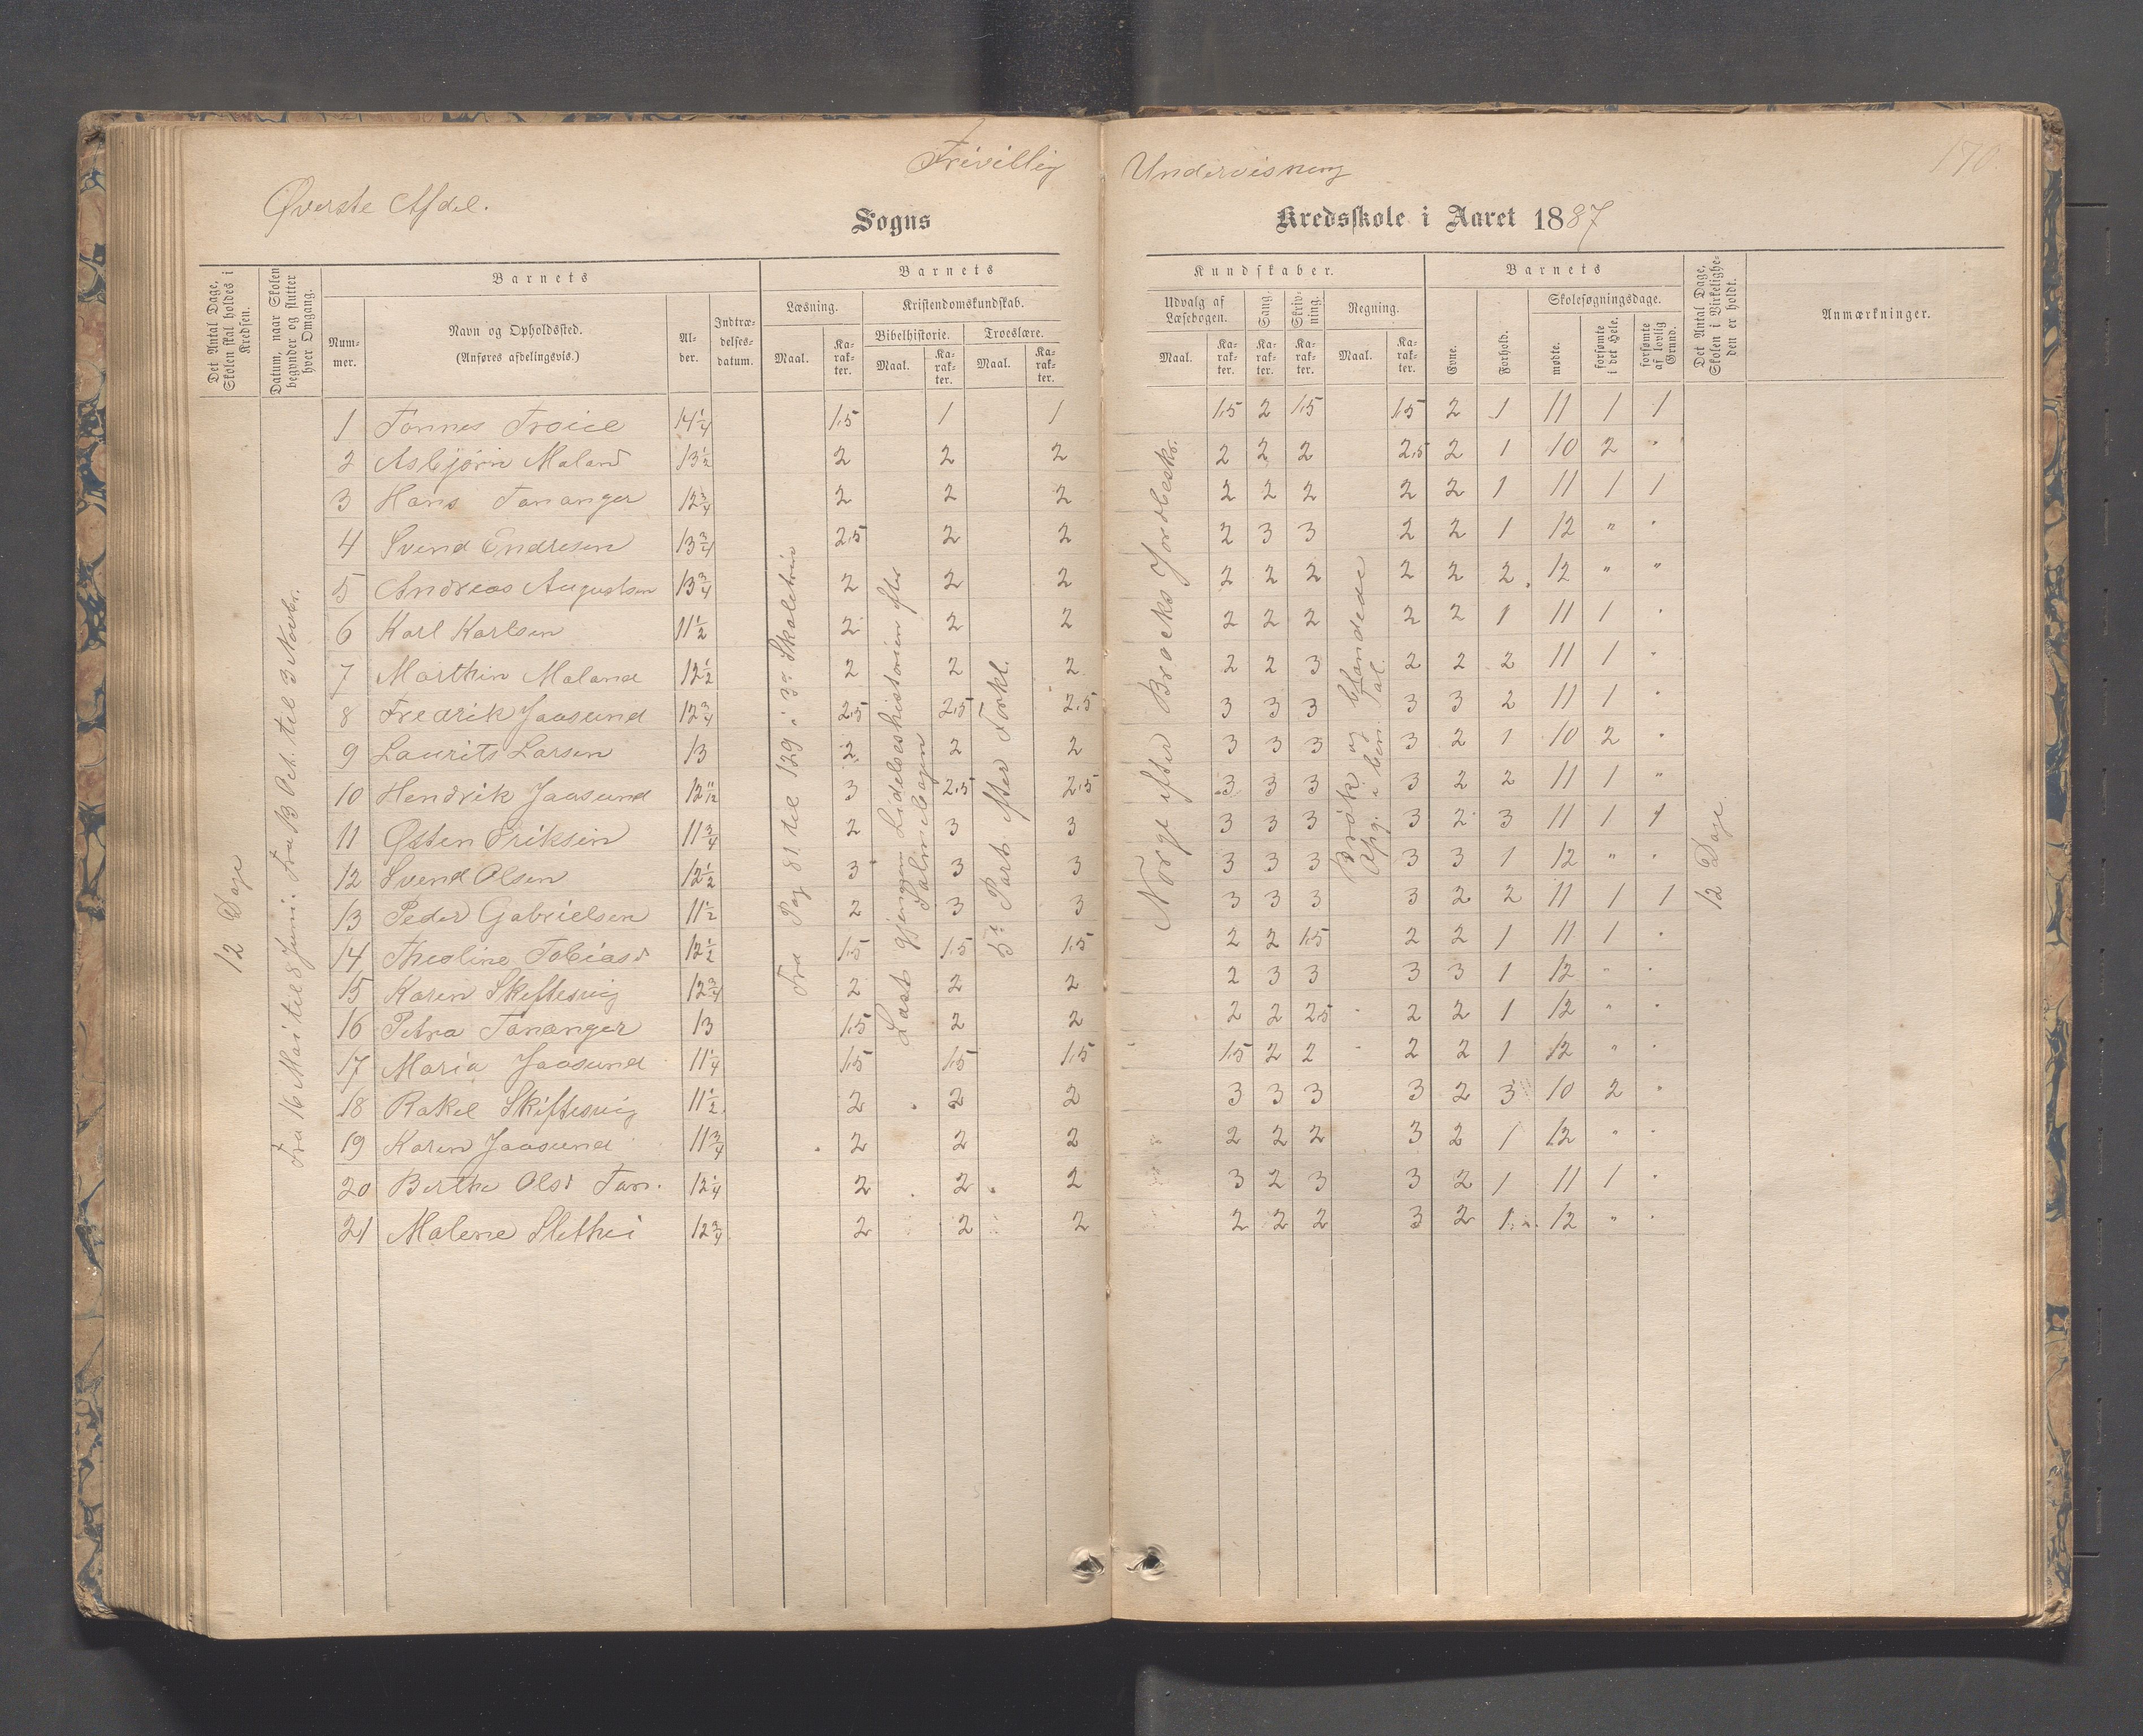 Frivillig Undervisning
170
Øverste Afdel.
Sogns Kredsskole i Aaret 1887
Det Antal Dage, Skolen skal holdes i Kredsen.
Datum, naar Skolen begynder og slutter hver Omgang.
Barnets
Nummer.
Navn og Opholdssted. (Anføres afdelingsvis.)
Alder.
Indtrædelsesdatum.
Barnets Kundskaber.
Læsning.
Maal. Karakter.
Kristendomskundskab.
Bibelhistorie. Troeslære.
Maal. Karakter. Maal. Karakter.
Udvalg af Læsebogen.
Maal. Karakter.
Sang. Karakter.
Skrivning. Karakter.
Regning.
Maal. Karakter.
Barnets
Evne. Forhold.
Skolesøgningsdage.
mødte. forsømte i det Hele. forsømte af lovlig Grund.
Det Antal Dage, Skolen i Virkeligheden er holdt.
Anmærkninger.
12 Dage
Fra 16 Mai til 8 Juni. Fra 13 Oct. til 3 Novbr.
Fra Pag 81 til 129 i 3die Skoletrin
Læst gjennem Lidelseshistorien efter Salmebogen
5te Part efter Forkl.
Norge efter Brocks Jordbeskr.
Brøk og blandede Tal.
Opg. i ben.
12 Dage
1 Tønnes Troice 14 1/4 1.5 1 1 1.5 2 1.5 1.5 2 1 11 1 1
2 Asbjørn Maland 13 1/2 2 2 2 2 2 2 2.5 2 1 10 2 "
3 Hans Tananger 12 3/4 2 2 2 2 2 2 2 2 1 11 1 1
4 Svend Endresen 13 3/4 2.5 2 2 2 3 3 2 2 1 12 " "
5 Andreas Augustsen 13 3/4 2 2 2 2 2 2 2 2 2 12 " "
6 Karl Karlsen 11 1/2 2 2 2 2 2 2 2 2 1 11 1 "
7 Marthin Maland 12 1/2 2 2 2 2 2 3 2 2 2 11 1 "
8 Fredrik Jaasund 12 3/4 2.5 2.5 2.5 3 3 3 3 3 2 11 1 "
9 Laurits Larsen 13 2 2 2 3 3 3 3 2 1 10 2 "
10 Hendrik Jaasund 12 11/12 3 2.5 2.5 3 3 3 3 2 2 11 1 "
11 Østen Eriksen 11 3/4 2 3 3 3 3 3 3 2 3 11 1 1
12 Svend Olsen 12 1/2 3 3 3 3 3 3 3 3 1 12 " "
13 Peder Gabrielsen 11 1/2 2 3 3 3 3 3 3 2 2 11 1 1
14 Theoline Tobiasd 12 1/2 1.5 1.5 1.5 2 2 1.5 2 2 1 11 1 "
15 Karen Skiftesvig 12 3/4 2 2 2 2 3 3 3 3 1 12 " "
16 Petra Tananger 13 1.5 2 2 2 2 2.5 2 2 1 12 " "
17 Maria Jaasund 11 1/4 1.5 1.5 1.5 1.5 2 2 2 2 1 12 " "
18 Rakel Skiftesvig 11 1/2 2 2 2 3 3 3 3 2 3 10 2 "
19 Karen Jaasund 11 3/4 2 2 2 2 2 2 3 2 1 12 " "
20 Berthe Olsd Tan. 12 1/4 2 2 2 3 2 3 3 2 1 11 1 "
21 Malene Slethei 12 3/4 2 2 2 2 2 2 3 2 1 12 " "